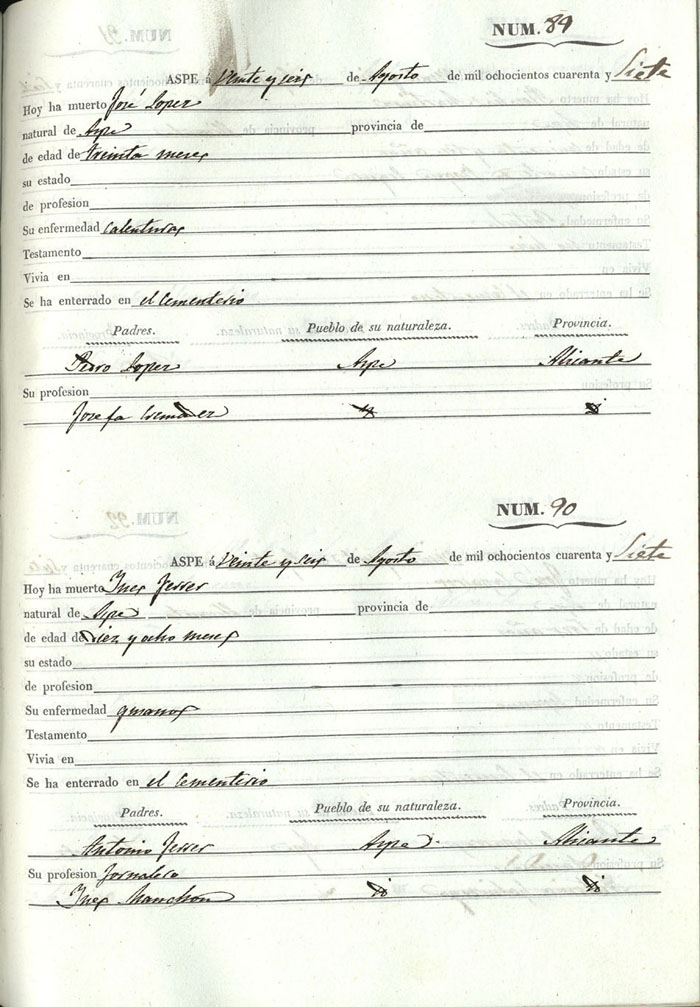 NUM. 89
ASPE á Veinte y seis de Agosto de mil ochocientos cuarenta y Siete
Hoy ha muerto José Lopez
natural de Aspe provincia de
de edad de treinta meses
su estado
de profesion
Su enfermedad calenturas
Testamento
Vivia en
Se ha enterrado en el Cementerio
Padres. Pueblo de su naturaleza. Provincia.
Pedro Lopez Aspe Alicante
Su profesion
Josefa Cremades
NUM. 90
ASPE á Veinte y seis de Agosto de mil ochocientos cuarenta y Siete
Hoy ha muerto Ines
natural de Aspe provincia de
de edad de Diez y ocho meses
su estado
de profesion
Su enfermedad gusanos
Testamento
Vivia en
Se ha enterrado en el Cementerio
Padres. Pueblo de su naturaleza. Provincia.
Antonio Aspe Alicante
Su profesion Jornalero
Ines Manchon